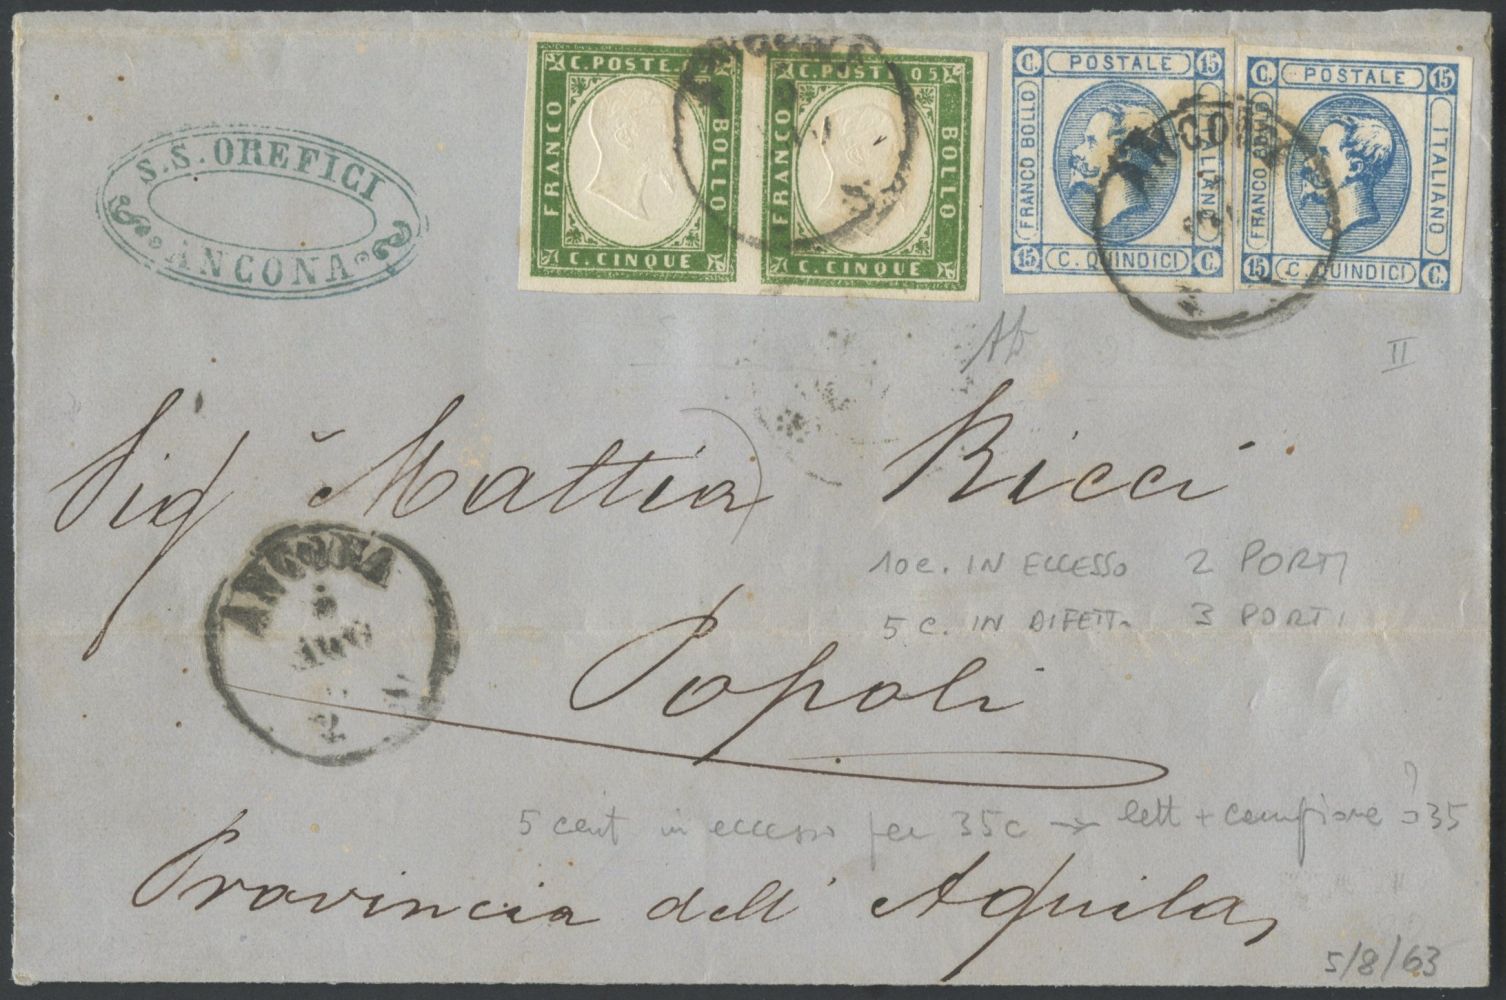 S.S. OREFICI
ANCONA
C. POSTE. C
FRANCO
BOLLO
C. CINQUE
C. POST 05
FRANCO
BOLLO
C. CINQUE
ANCONA
C. POSTALE 15
FRANCO BOLLO
ITALIANO
15 C. QUINDICI C.
C. POSTALE 15
FRANCO BOLLO
ITALIANO
15 C. QUINDICI C.
ANCONA
II
Sigr Mattia Ricci
10 c. IN ECCESSO 2 PORTI
5 C. IN DIFETTO 3 PORTI
ANCONA
5
AGO
Popoli
5 cent in eccesso per 35c → lett + campione ? 35
Provincia dell' Aquila,
5/8/63